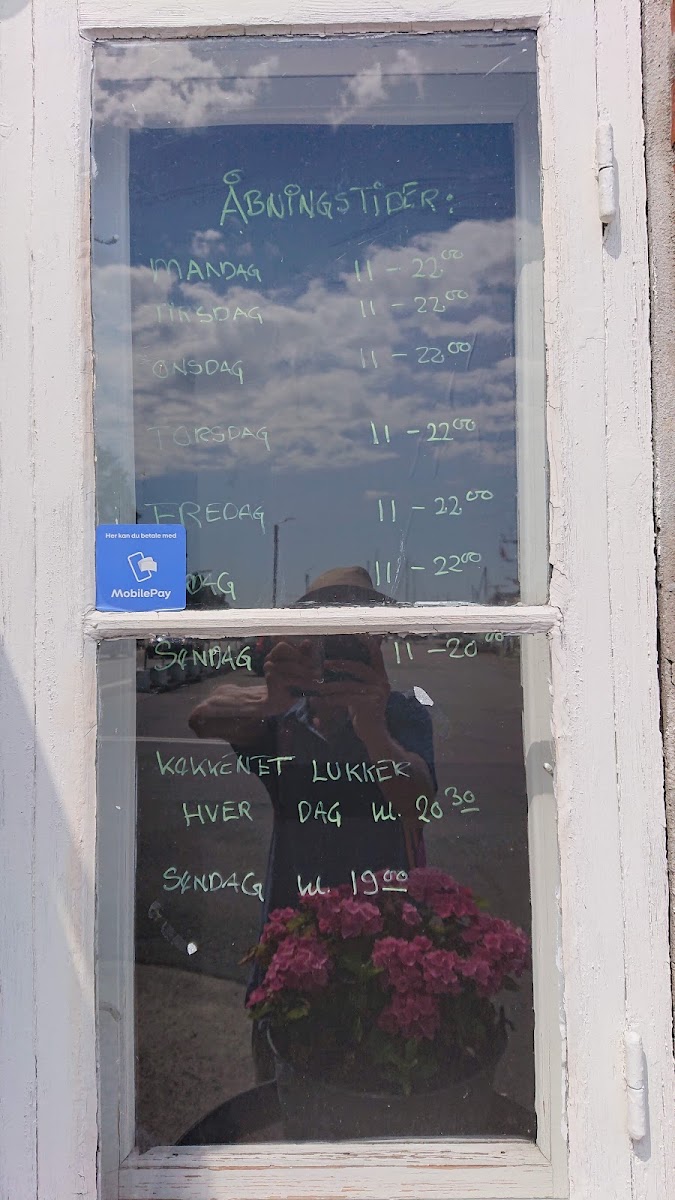 ÅBNINGSTIDER:
MANDAG 11 - 22⁰⁰
TIRSDAG 11 - 22⁰⁰
ONSDAG 11 - 22⁰⁰
TORSDAG 11 - 22⁰⁰
FREDAG 11 - 22⁰⁰
DAG 11 - 22⁰⁰
Her kan du betale med
MobilePay
SØNDAG 11 - 20⁰⁰
KØKKENET LUKKER
HVER DAG kl. 20³⁰
SØNDAG kl. 19⁰⁰